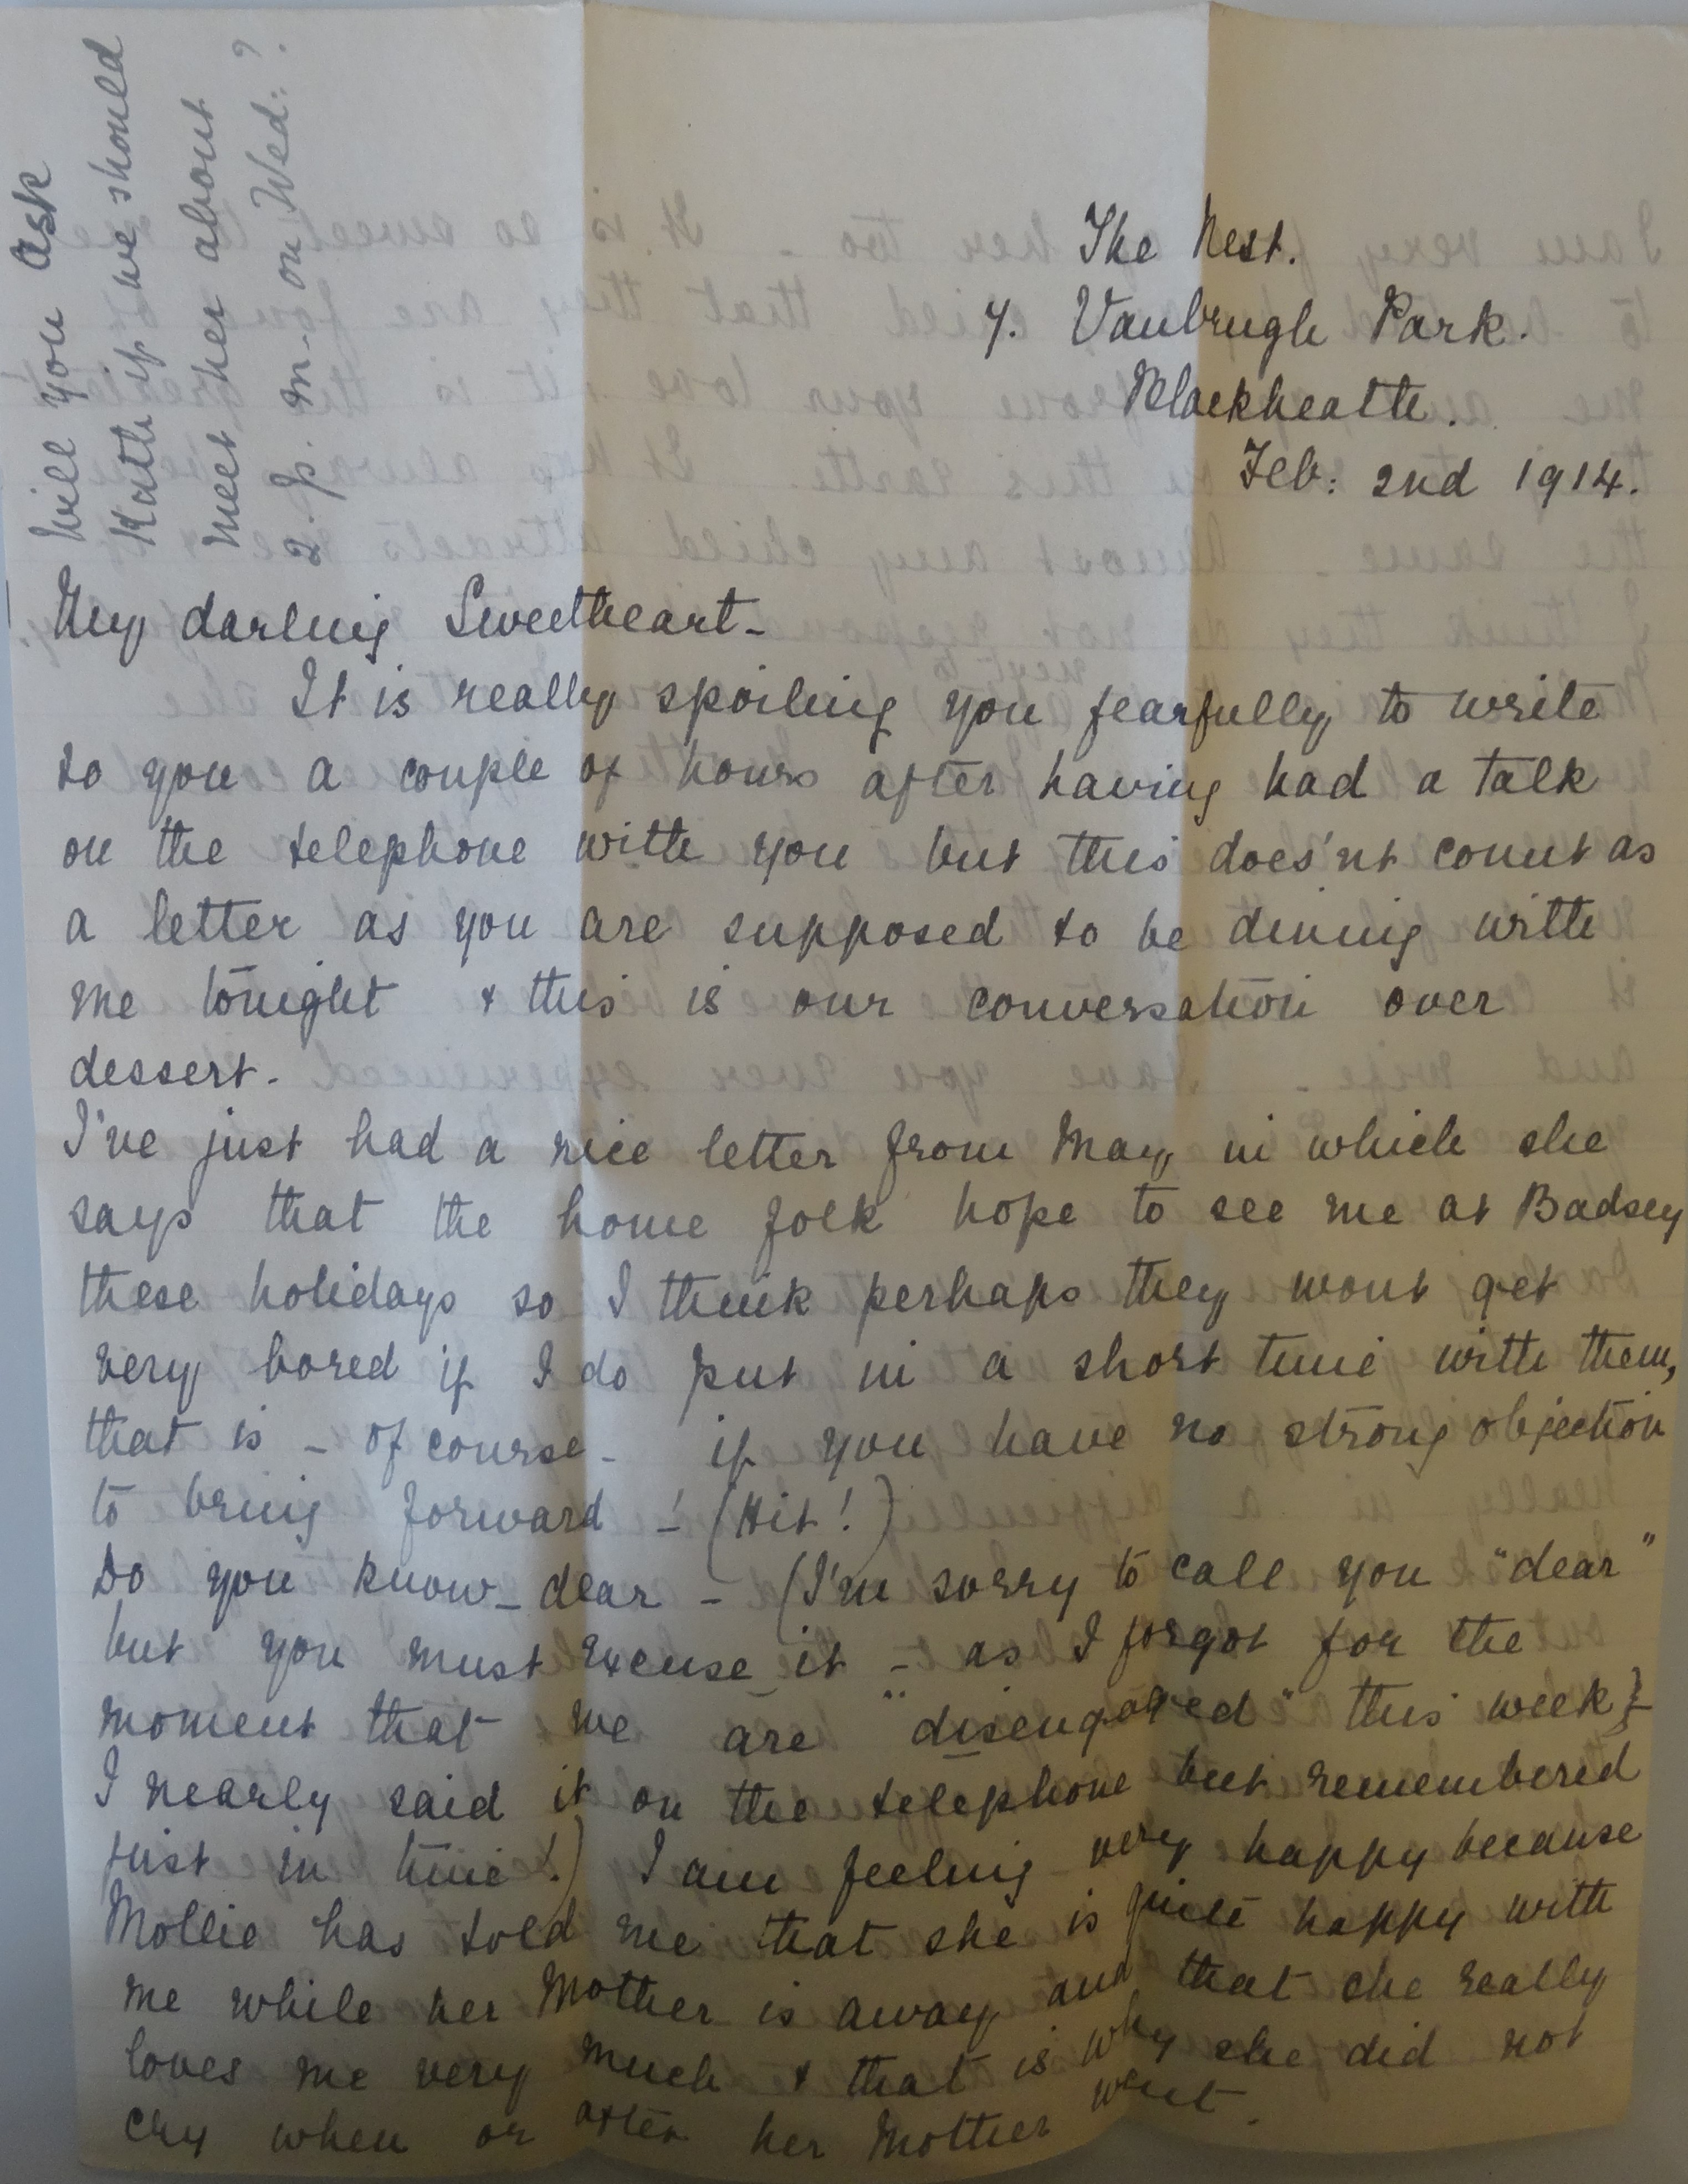 Will you ask
Kath if we should
meet her about
2. p. m. on Wed: ?
The Nest.
7. Vanbrugh Park.
Blackheath.
Feb: 2nd 1914.
My darling Sweetheart -
It is really spoiling you fearfully to write
to you a couple of hours after having had a talk
on the telephone with you but this does'nt count as
a letter as you are supposed to be dining with
me tonight & this is our conversation over
dessert.
I've just had a nice letter from May in which she
says that the home folk hope to see me at Badsey
these holidays so I think perhaps they wont get
very bored if I do put in a short time with them,
that is - of course - if you have no strong objection
to bring forward -! (Hit!)
Do you know - dear - (I'm sorry to call you "dear"
but you must excuse it - as I forgot for the
moment that we are "disengaged" this week}-
I nearly said it on the telephone but remembered
just in time!) I am feeling very happy because
Mollie has told me that she is quite happy with
me while her Mother is away and that she really
loves me very much & that is why she did not
cry when or after her Mother went.